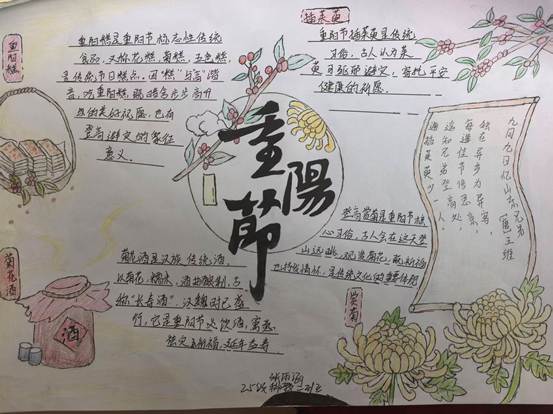 重阳糕
重阳糕是重阳节标志性传统
食品，又称花糕、菊糕、五色糕，
是传统节日糕点，因“糕”与“高”谐
音，吃重阳糕
的美好祝愿，也有
登高避灾的象征
意义。
插茱萸
重阳节插茱萸是传统
习俗，古人认为茱
萸可驱邪避灾，寄托平安
健康的祈愿。
重陽節
九月九日忆山东兄弟
唐 王维
独在异乡为异客，
每逢佳节倍思亲。
遥知兄弟登高处，
遍插茱萸少一人。
菊花酒
菊花酒是汉族传统酒，
以菊花、糯米、酒曲酿制，古
称“长寿酒”，汉魏时已盛
行，它是重阳节必饮酒，寓意
祛灾祈福，延年益寿
登高赏菊是重阳节核
心习俗，古人会在这天登
山远眺，观赏菊花，
是传统文化的重要体现
赏菊
酒